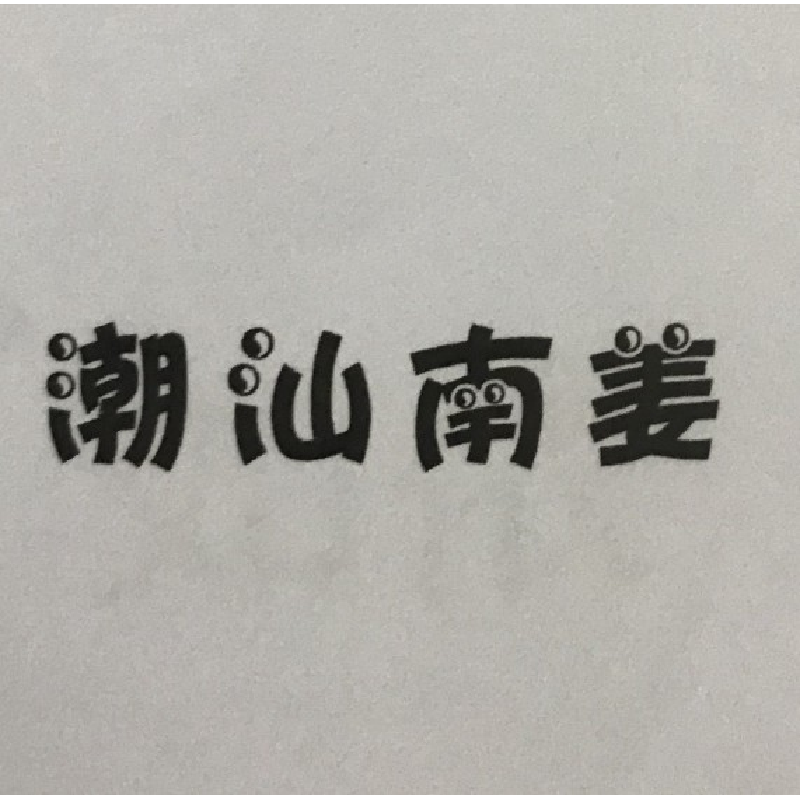 潮汕南姜